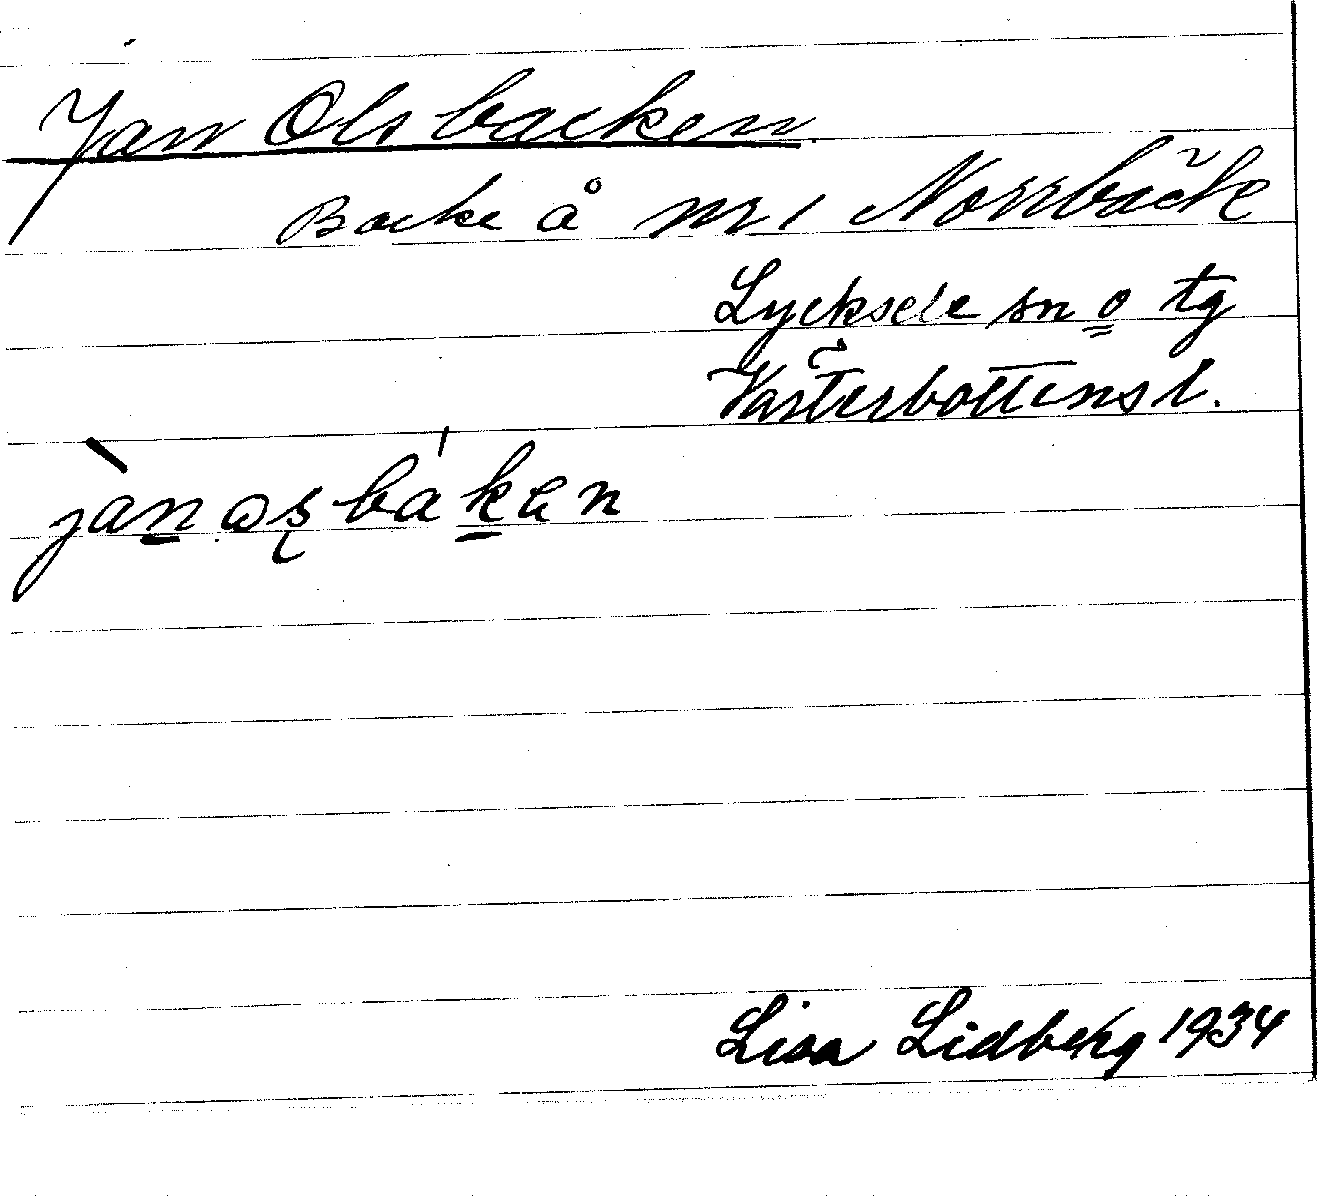 Jan Olsbacken
Backe å nr 1 Norrbäck
Lycksele sn o tg
Västerbottens l.
Lisa Lidberg 1934